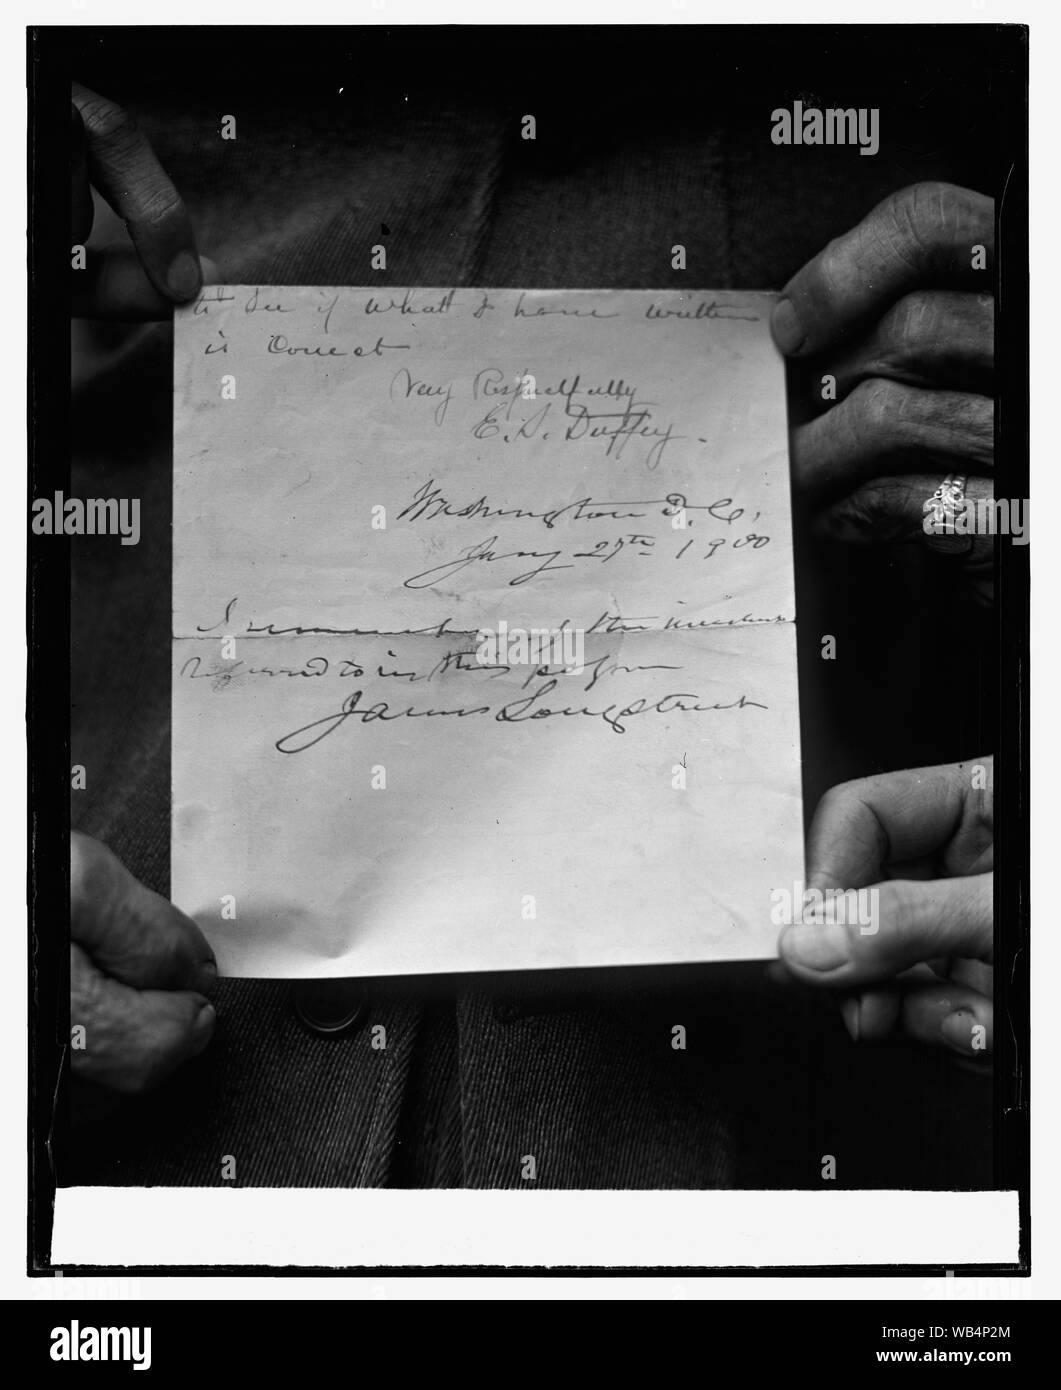 to see if what I have written
is Correct
Very Respectfully
E. S. Duffey.
Washington D.C.
Jany 27th 1900
I remember of the
referred to in this
James Longstreet
alamy
alamy
alamy
alamy
alamy
Image ID: WB4P2M
www.alamy.com